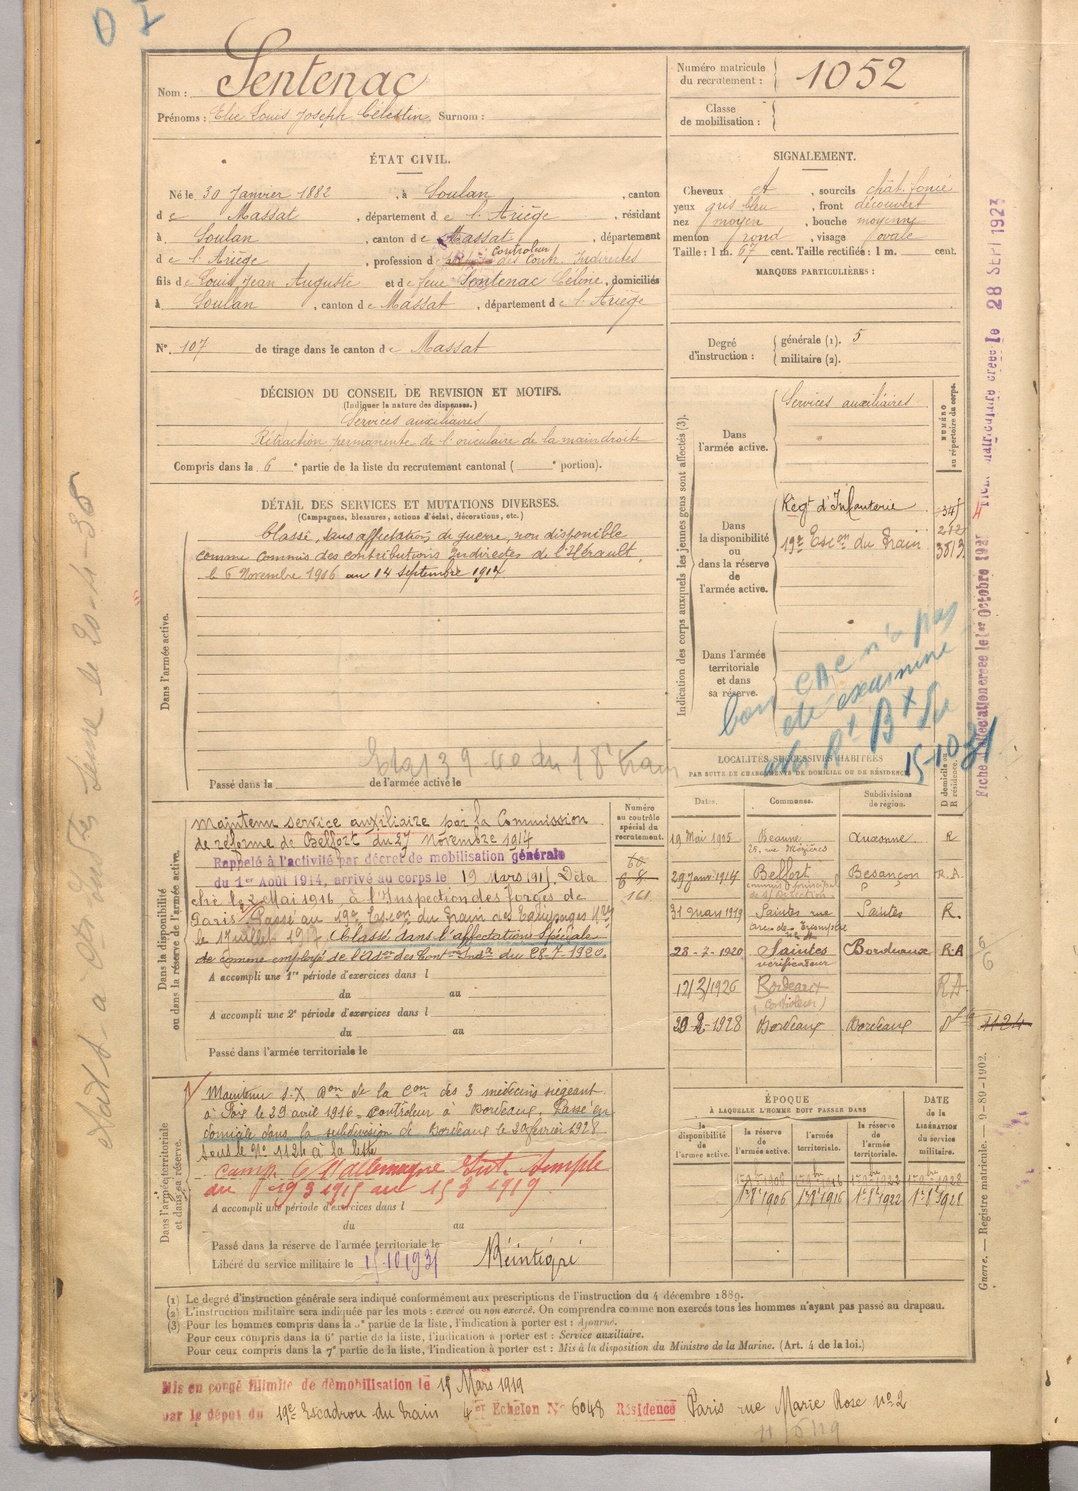 Nom : Sentenac
Prénoms : Elie Louis Joseph Célestin Surnom :
Numéro matricule du recrutement : 1052
Classe de mobilisation :
ÉTAT CIVIL.
Né le 30 Janvier 1882, à Soulan, canton
de Massat, département de l'Ariège, résidant
à Soulan, canton de Massat, département
de l'Ariège, profession de Controleur des Contr. Indirectes
fils de Louis Jean Auguste et de feue Sentenac Céline, domiciliés
à Soulan, canton de Massat, département de l'Ariège
N° 107 de tirage dans le canton de Massat
SIGNALEMENT.
Cheveux ct, sourcils chât. foncé
yeux gris bleu, front découvert
nez moyen, bouche moyenne
menton rond, visage ovale
Taille : 1 m. 67 cent. Taille rectifiée : 1 m. cent.
MARQUES PARTICULIÈRES :
Degré d'instruction : générale (1). 5
militaire (2).
DÉCISION DU CONSEIL DE REVISION ET MOTIFS.
(Indiquer la nature des dispenses.)
Services auxiliaires
Rétraction permanente de l'auriculaire de la main droite
Compris dans la 6e partie de la liste du recrutement cantonal ( e portion).
DÉTAIL DES SERVICES ET MUTATIONS DIVERSES.
(Campagnes, blessures, actions d'éclat, décorations, etc.)
Dans l'armée active.
Classé, sans affectation de guerre, non disponible
comme commis des contributions Indirectes de l'Hérault
le 6 Novembre 1906 au 14 Septembre 1914
Passé dans la de l'armée active le
Indication des corps auxquels les jeunes gens sont affectés (3).
NUMÉRO au répertoire du corps.
Dans l'armée active.
Services auxiliaires
Dans la disponibilité ou dans la réserve de l'armée active.
Régt d'Infanterie
19e Escon du Train
Dans l'armée territoriale et dans sa réserve.
n'a pas
été examiné
15-10-31
LOCALITÉS SUCCESSIVES HABITÉES
PAR SUITE DE CHANGEMENTS DE DOMICILE OU DE RÉSIDENCE
Dates. Communes. Subdivisions de région. D domicile ou R résidence.
19 Mai 1905 Beaune Auxonne R
29 Janv 1914 Belfort Besançon R.A
31 Mars 1919 Saintes rue Arc de Triomphe Saintes R.
28-7-1920 Saintes vérificateur Bordeaux R-A
12/2/1926 Bordeaux (controleur) RA
20-2-1928 Bordeaux Bordeaux
1124
Dans la disponibilité ou dans la réserve de l'armée active.
Numéro au contrôle spécial du recrutement.
161
Maintenu service auxiliaire par la Commission
de réforme de Belfort du 27 Novembre 1914
Rappelé à l'activité par décret de mobilisation générale
du 1er Août 1914, arrivé au corps le 19 Mars 1915. Déta
ché le 2 Mai 1916, à l'Inspection des forges de
Paris. Passé au 19e Escon du Train des Equipages
le 1 Juillet 1917 Classé dans l'affectation Spéciale
comme employé de l'Adon des Contons Indes du 28-7-1920.
A accompli une 1re période d'exercices dans l
du au
A accompli une 2e période d'exercices dans l
du au
Passé dans l'armée territoriale le
Dans l'armée territoriale et dans sa réserve.
Maintenu S.X Don de la Con des 3 médecins siégeant
à Foix le 29 avril 1916. Controleur à Bordeaux. Passé en
domicile dans la subdivision de Bordeaux le 20 février 1928
sous le N° 1124 à la liste
Camp. c. l'Allemagne Int. Simple
du 19 3 1915 au 15 3 1919.
A accompli une période d'exercices dans l
du au
Passé dans la réserve de l'armée territoriale le
Libéré du service militaire le 15-10-1931 Réintégré
ÉPOQUE
À LAQUELLE L'HOMME DOIT PASSER DANS
la disponibilité de l'armée active. la réserve de l'armée active. l'armée territoriale. la réserve de l'armée territoriale.
DATE de la LIBÉRATION du service militaire.
1906 1916 1922 1928
(1) Le degré d'instruction générale sera indiqué conformément aux prescriptions de l'instruction du 4 décembre 1889.
(2) L'instruction militaire sera indiquée par les mots : exercé ou non exercé. On comprendra comme non exercés tous les hommes n'ayant pas passé au drapeau.
(3) Pour les hommes compris dans la 5e partie de la liste, l'indication à porter est : Ajourné.
Pour ceux compris dans la 6e partie de la liste, l'indication à porter est : Service auxiliaire.
Pour ceux compris dans la 7e partie de la liste, l'indication à porter est : Mis à la disposition du Ministre de la Marine. (Art. 4 de la loi.)
Mis en congé illimité de démobilisation le 15 Mars 1919
par le dépôt du 19e Escadron du Train 4er Échelon N° 6048 Résidence Paris rue Marie Rose n° 2
Guerre. — Registre matricule. — 9-89-1902.
28 SEPT 1923